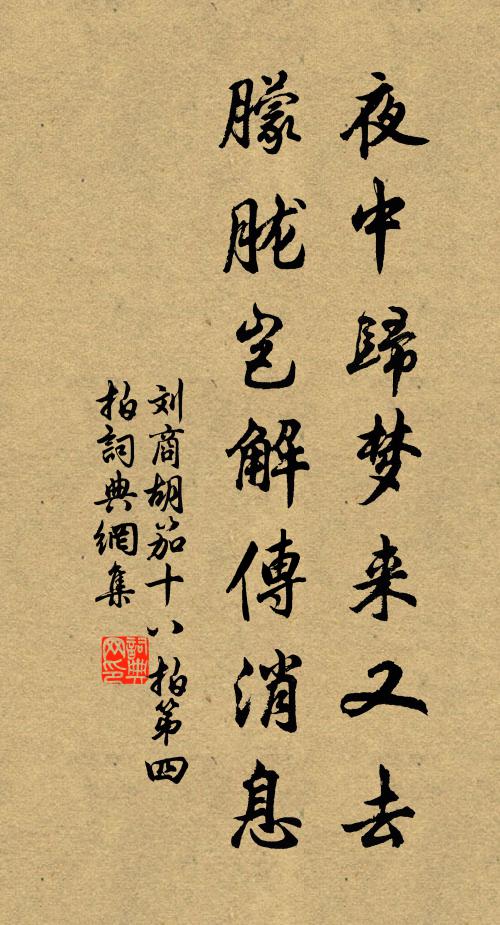 夜中歸梦来又去
朦胧岂解傳消息
刘商胡笳十八拍第四
拍詞典網集
詞典网印